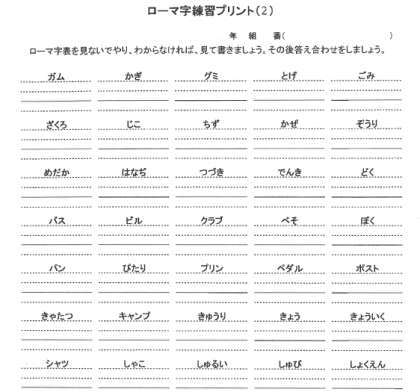 ローマ字練習プリント(2)
年 組 番( )
ローマ字表を見ないでやり、わからなければ、見て書きましょう。その後答え合わせをしましょう。
ガム かぎ グミ とげ ごみ
ざくろ じこ ちず かぜ ぞうり
めだか はなぢ つづき でんき どく
バス ビル クラブ べそ ぼく
パン ぴたり プリン ペダル ポスト
きゃたつ キャンプ きゅうり きょう きょういく
シャツ しゃこ しゅるい しゅび しょくえん